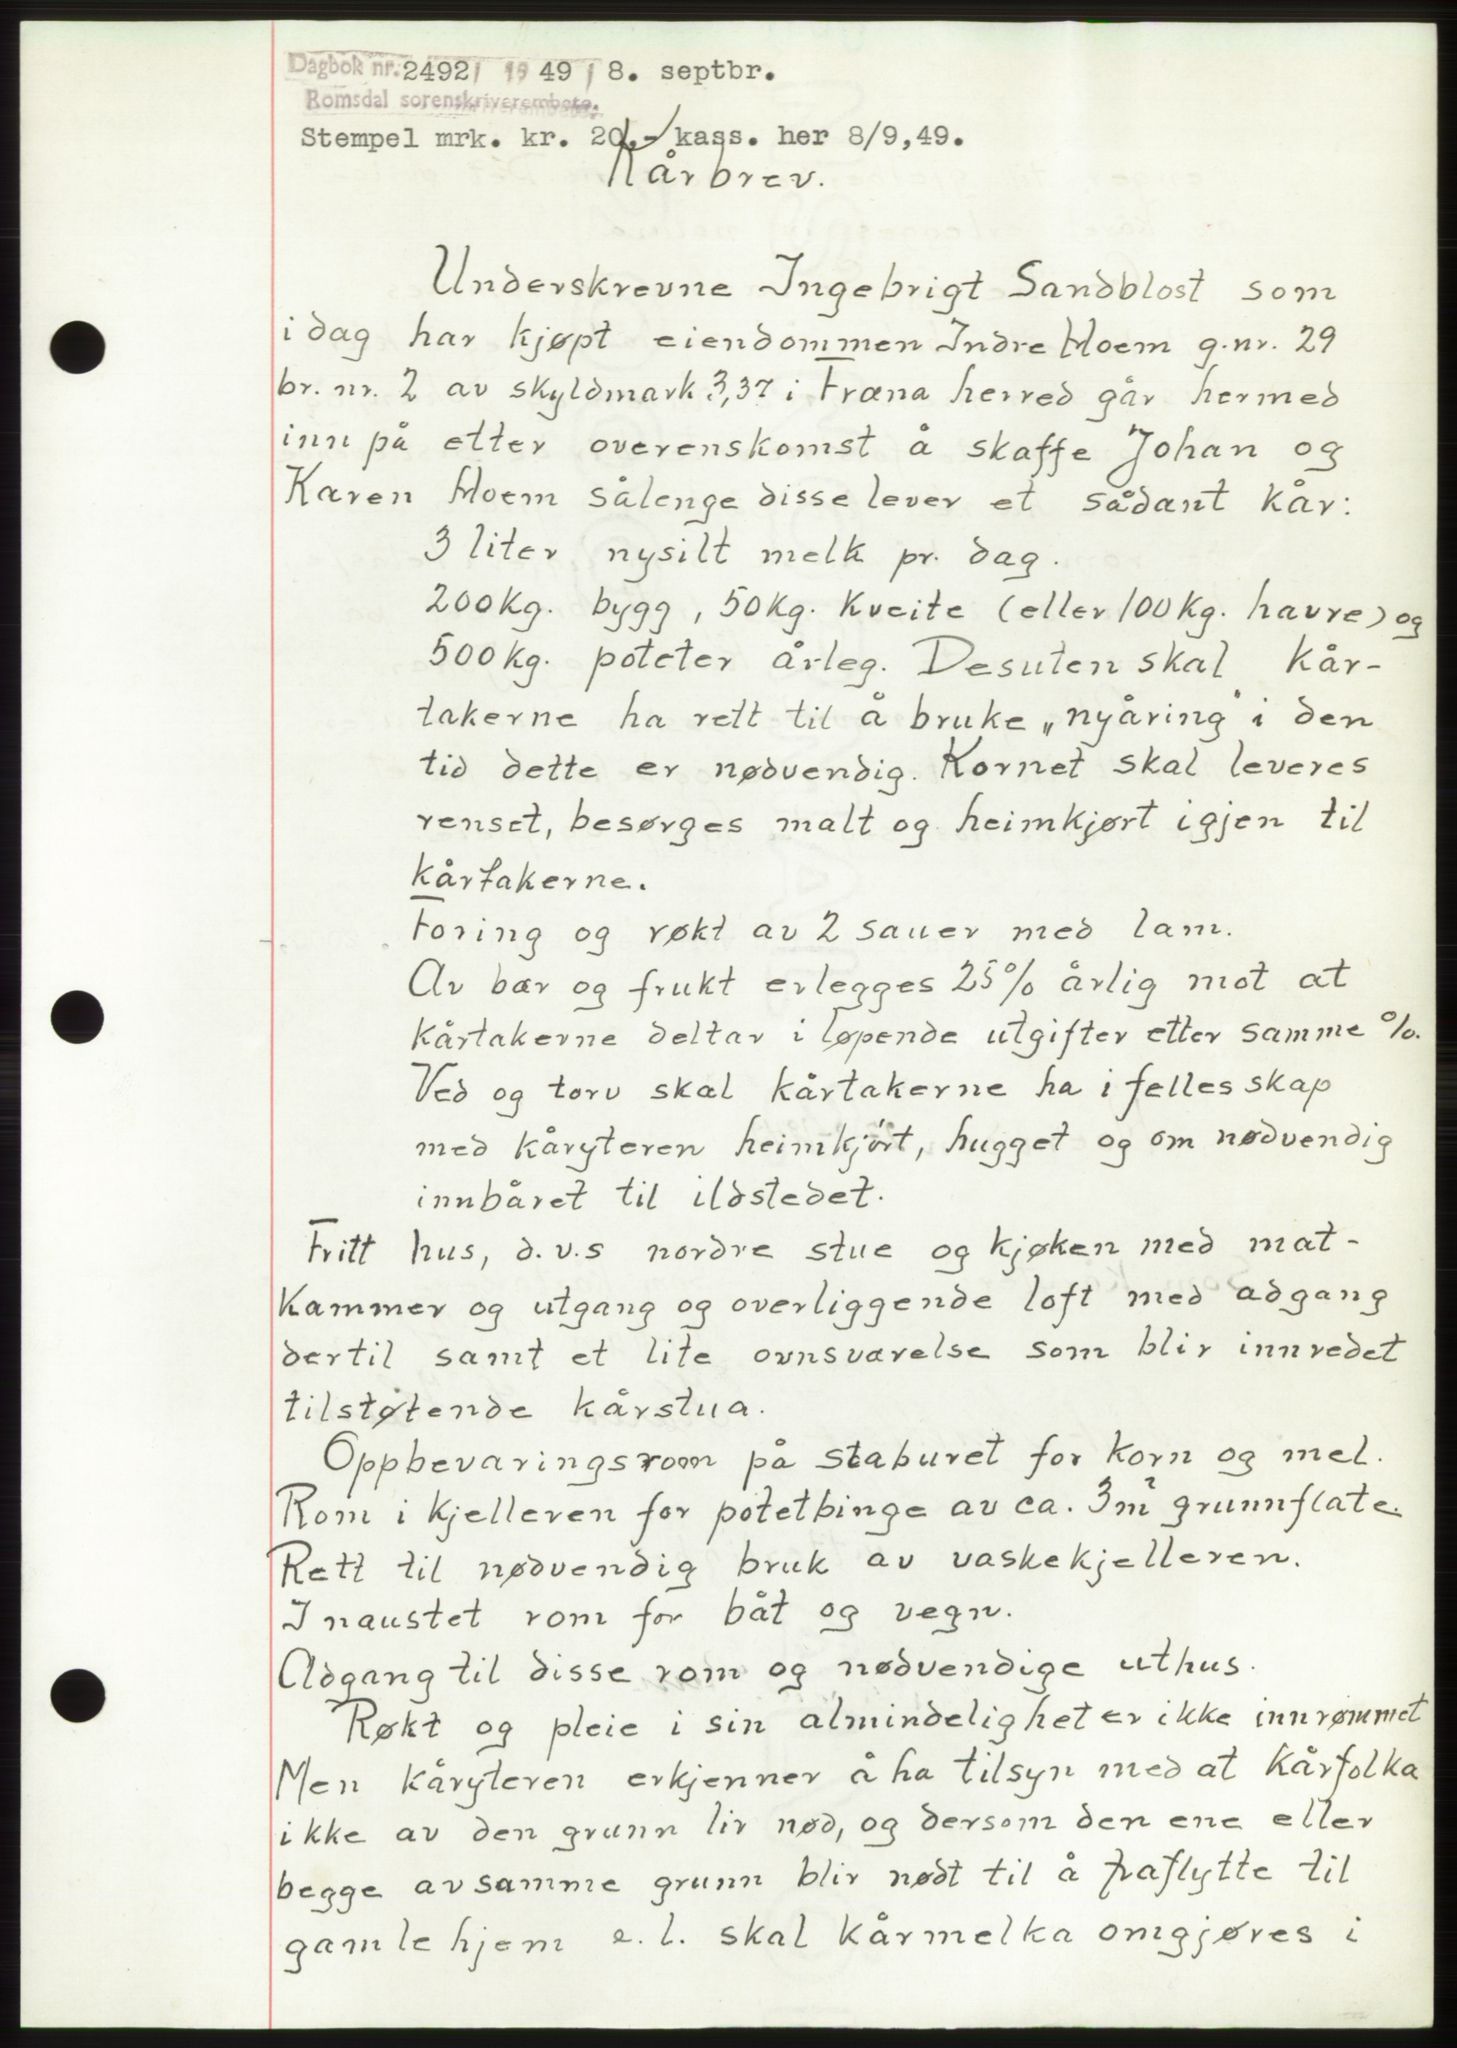 Dagbok nr. 2492 / 1949 / 8. septbr.
Romsdal sorenskriverembete.
Stempel mrk. kr. 20.- kass. her 8/9,49.
Kårbrev.
Underskrevne Ingebrigt Sandblost som
i dag har kjøpt eiendommen Indre Moem g.nr. 29
br. nr. 2 av skyldmark 3,37 i Fræna herred går hermed
inn på etter overenskomst å skaffe Johan og
Karen Moem sålenge disse lever et sådant kår:
3 liter nysilt melk pr. dag.
200 kg. bygg, 50 kg. kveite (eller 100 kg. havre) og
500 kg. poteter årleg. Desuten skal kår-
takerne ha rett til å bruke „nyåring" i den
tid dette er nødvendig. Kornet skal leveres
renset, besørges malt og heimkjørt igjen til
kårtakerne.
Foring og røkt av 2 sauer med lam.
Av bær og frukt erlegges 25% årlig mot at
kårtakerne deltar i løpende utgifter etter samme %.
Ved og torv skal kårtakerne ha i fellesskap
med kåryteren heimkjørt, hugget og om nødvendig
innbåret til ildstedet.
Fritt hus, d.v.s nordre stue og kjøken med mat-
kammer og utgang og overliggende loft med adgang
dertil samt et lite ovnsværelse som blir innredet
tilstøtende kårstua.
Oppbevaringsrom på staburet for korn og mel.
Rom i kjelleren for potetbinge av ca. 3m² grunnflate.
Rett til nødvendig bruk av vaskekjelleren.
I naustet rom for båt og vegn.
Adgang til disse rom og nødvendige uthus.
Røkt og pleie i sin almindelighet er ikke innrømmet
Men kåryteren erkjenner å ha tilsyn med at kårfolka
ikke av den grunn lir nød, og dersom den ene eller
begge av samme grunn blir nødt til å fraflytte til
gamlehjem e.l. skal kårmelka omgjøres i